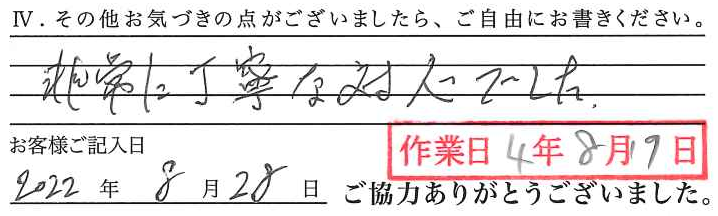 Ⅳ．その他お気づきの点がございましたら、ご自由にお書きください。
非常に丁寧な対応でした。
お客様ご記入日
作業日 4年 8月 9日
2022 年 8 月 28 日 ご協力ありがとうございました。